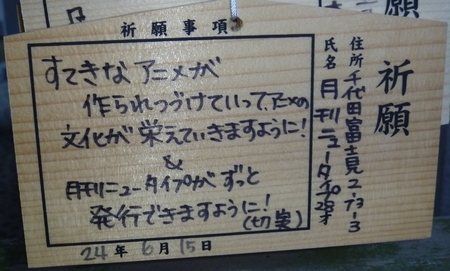 祈願事項
すてきなアニメが
作られつづけていって、アニメの
文化が栄えていきますように!
&
月刊ニュータイプがずっと
発行できますように!
(切実)
24年6月15日
祈願
住所 千代田富士見2-13-3
氏名 月刊ニュータイプ28才